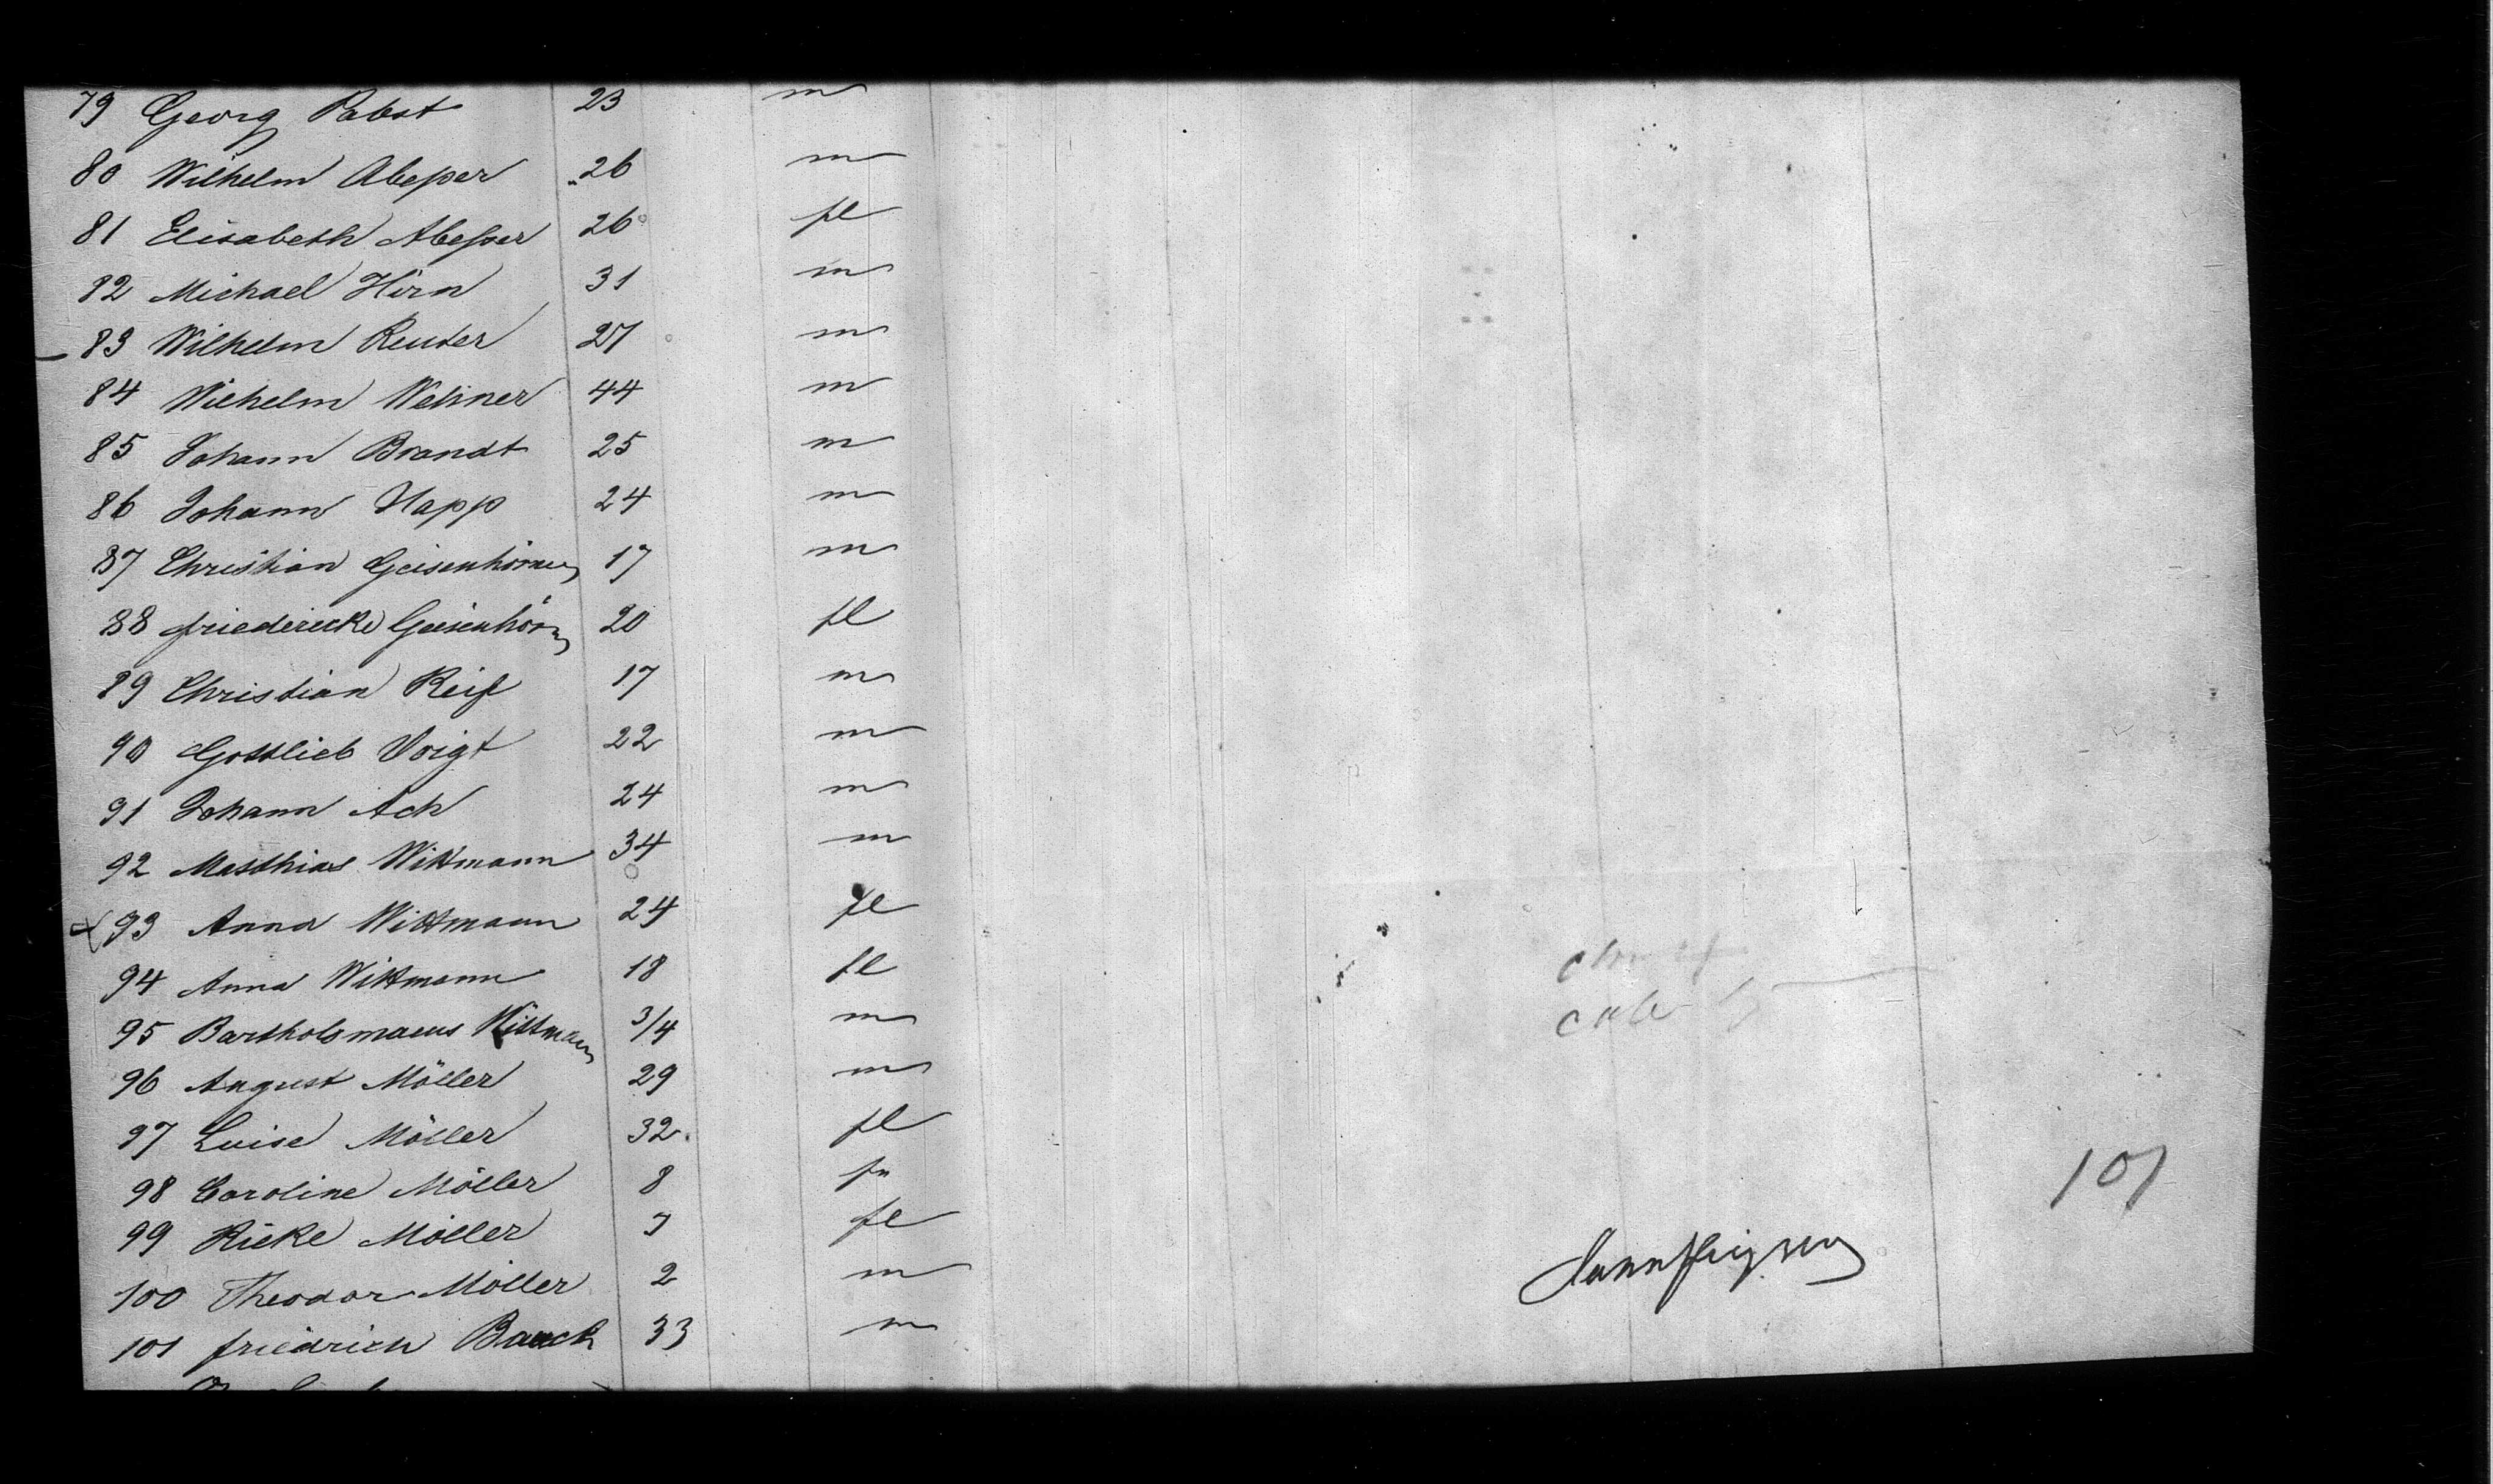 79 Georg Pabst 23 m
80 Wilhelm Abeßer 26 m
81 Elisabeth Abeßer 26 fl
82 Michael Hirn 31 m
83 Wilhelm Reuter 27 m
84 Wilhelm Wehner 44 m
85 Johann Brandt 25 m
86 Johann Happ 24 m
87 Christian Geisenhörner 17 m
88 Friedericke Geisenhörn 20 fl
89 Christian 17 m
90 Gottlieb Voigt 22 m
91 Johann Ach 24 m
92 Matthias Wittmann 34 m
93 Anna Wittmann 24 fl
94 Anna Wittmann 18 fl
95 Bartholomaeus Wittmann 3/4 m
96 August Möller 29 m
97 Luise Möller 32 fl
98 Caroline Möller 8
99 Rieke Möller 7 fl
100 Theodor Möller 2 m
101 Friedrich Bauck 33 m
101